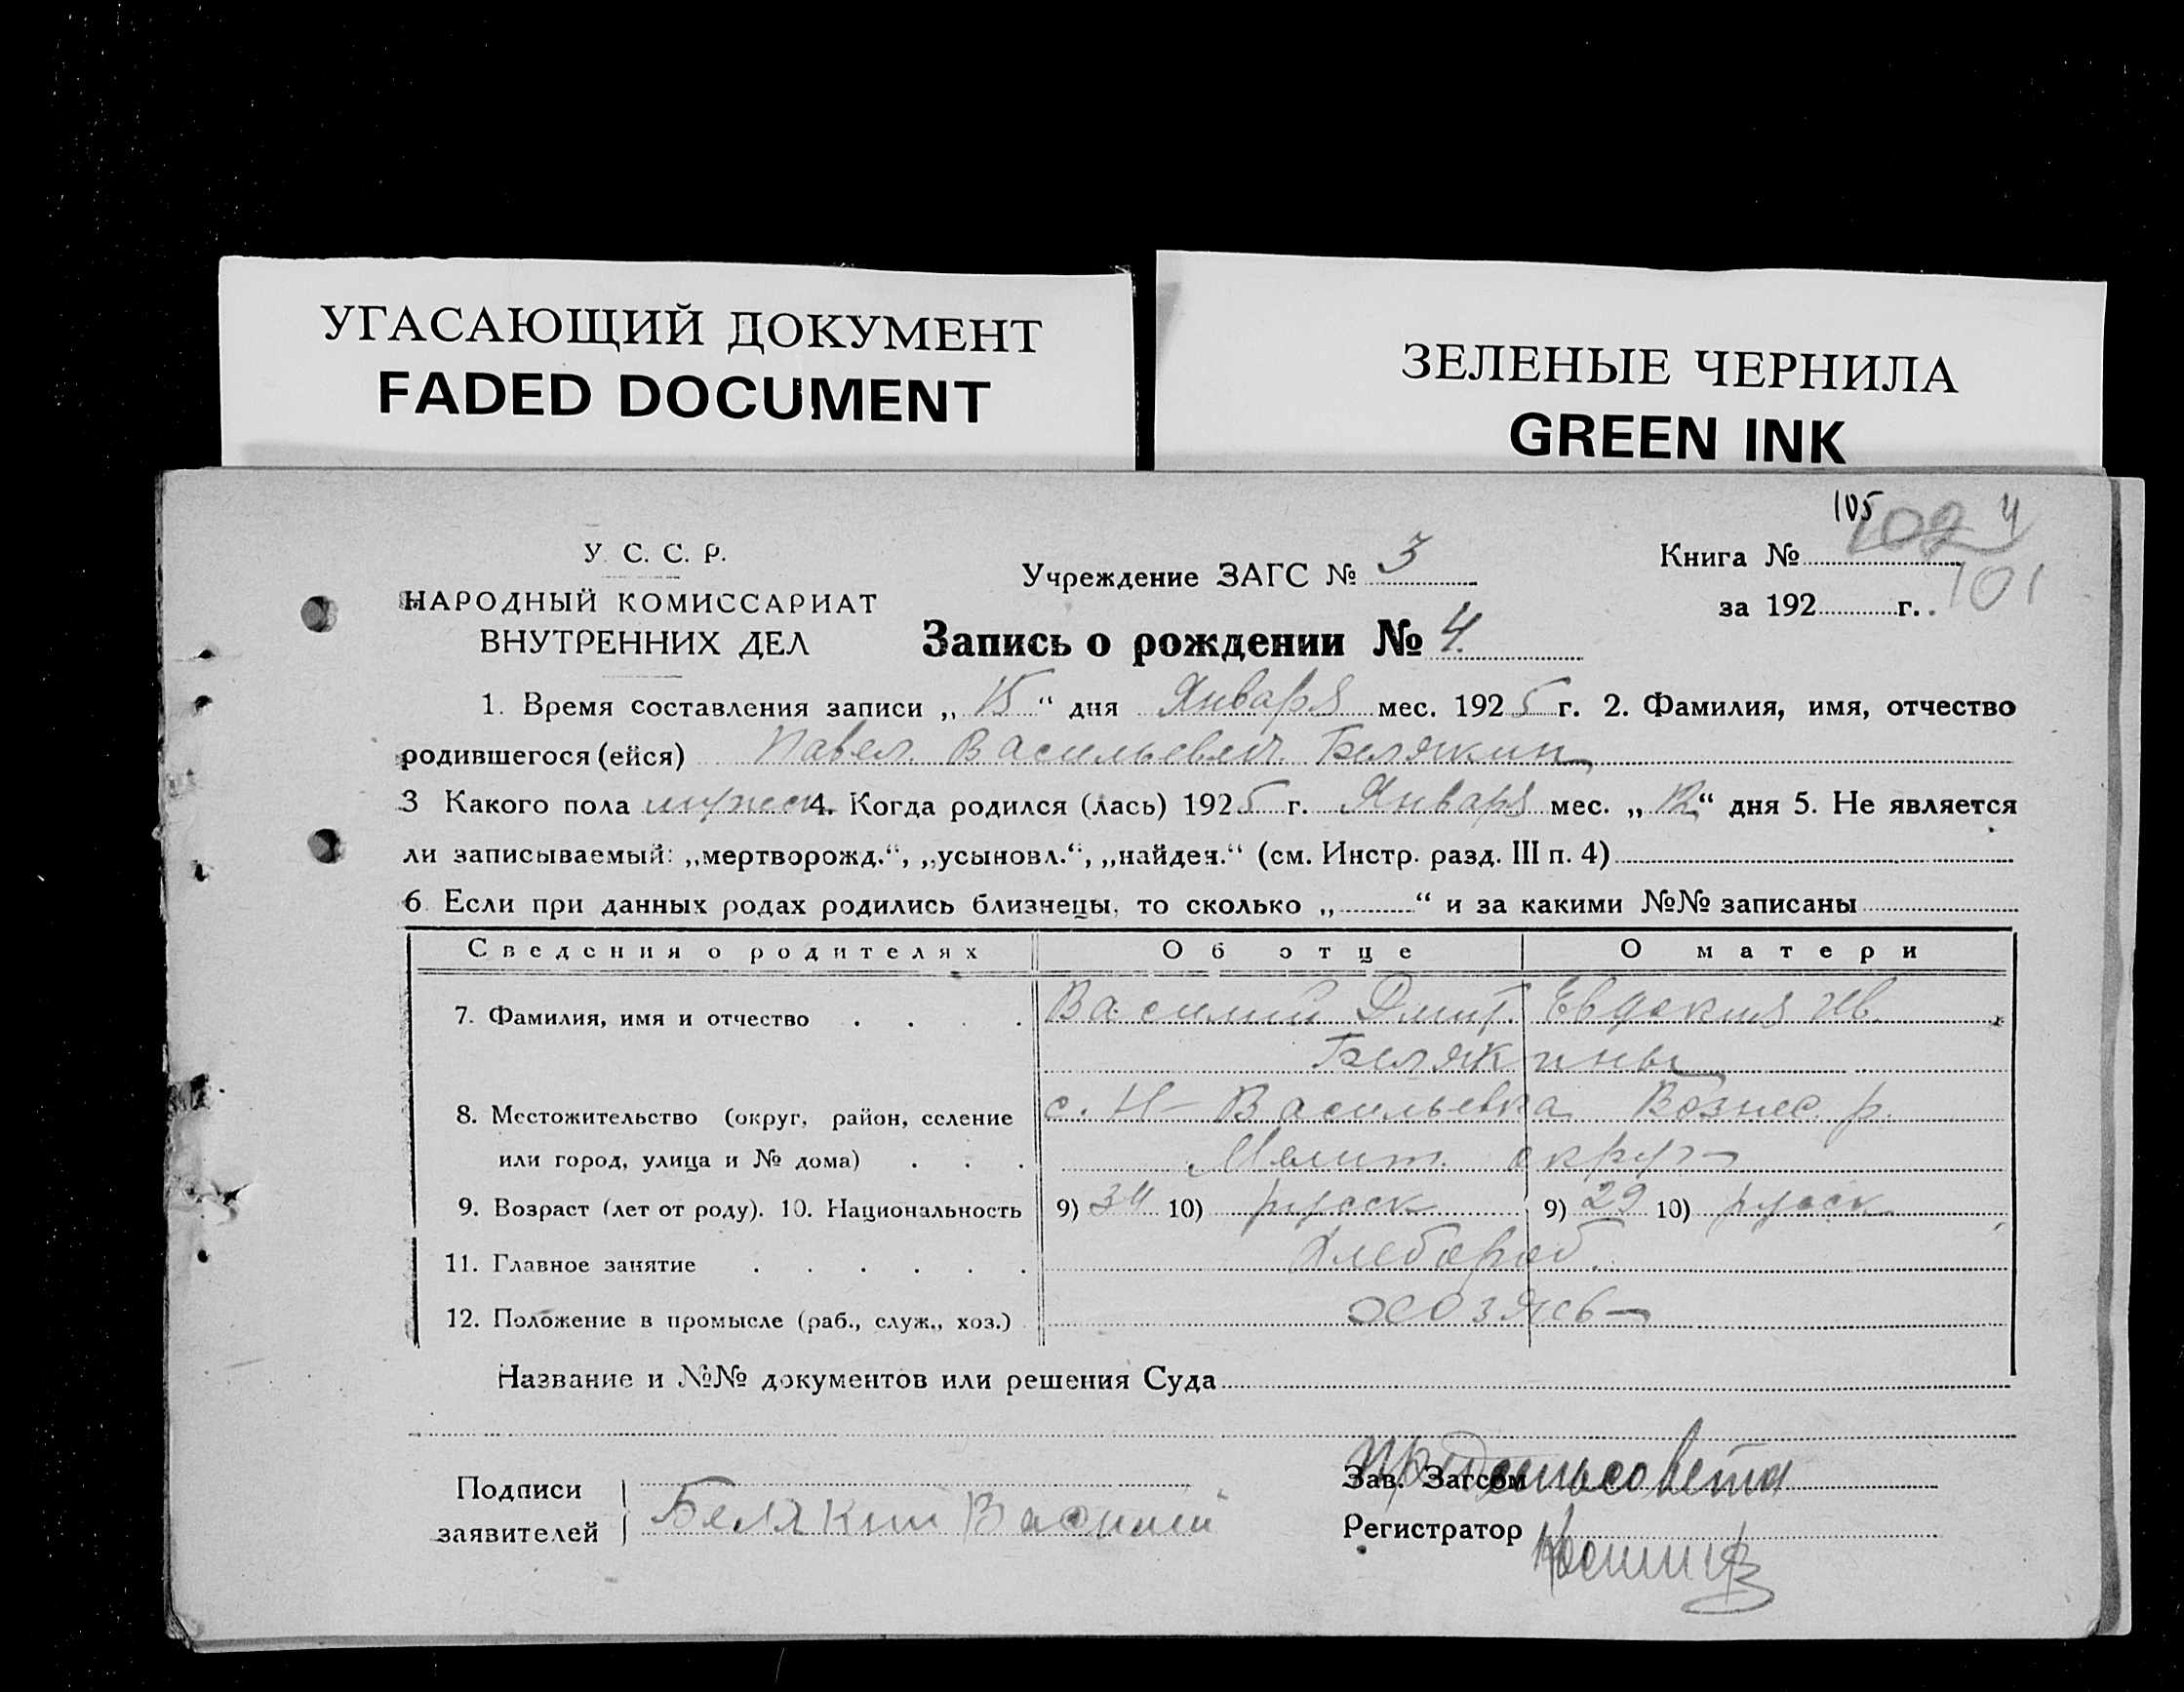 УГАСАЮЩИЙ ДОКУМЕНТ
FADED DOCUMENT
ЗЕЛЕНЫЕ ЧЕРНИЛА
GREEN INK
105
102 4
У. С. С. Р.
НАРОДНЫЙ КОМИССАРИАТ
ВНУТРЕННИХ ДЕЛ
Учреждение ЗАГС № 3
Книга №
за 192 г. 101
Запись о рождении № 4.
1. Время составления записи „ 15 “ дня Января мес. 192 5 г. 2. Фамилия, имя, отчество
родившегося (ейся) Павел Васильевич Белякин
3 Какого пола мужск 4. Когда родился (лась) 192 5 г. Января мес. „ 12 “ дня 5. Не является
ли записываемый: „мертворожд.“, „усыновл.“, „найден.“ (см. Инстр. разд. III п. 4)
6. Если при данных родах родились близнецы, то сколько „ “ и за какими №№ записаны
Сведения о родителях Об отце О матери
7. Фамилия, имя и отчество . . . . Василий Дмит. Евдокия Ив.
Белякины
8. Местожительство (округ, район, селение с. Н-Васильевка Вознес. р.
или город, улица и № дома) . . . Мелит. округ
9. Возраст (лет от роду). 10. Национальность 9) 34 10) русск 9) 29 10) русск
11. Главное занятие . . . . . . Хлебороб.
12. Положение в промысле (раб., служ., хоз.) хозяев
Название и №№ документов или решения Суда
Подписи
заявителей
Белякин Василий
Зав. Загсом Предсельсовета
Регистратор